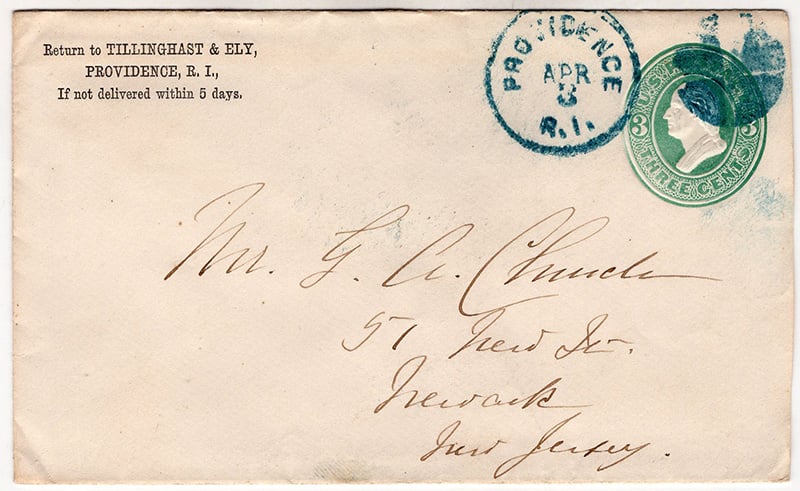 Return to TILLINGHAST & ELY,
PROVIDENCE, R. I.,
If not delivered within 5 days.
PROVIDENCE
APR
R.I.
U.S.
3 3
THREE CENTS
Mr. G. A. Church
51 New St.
Newark
New Jersey.